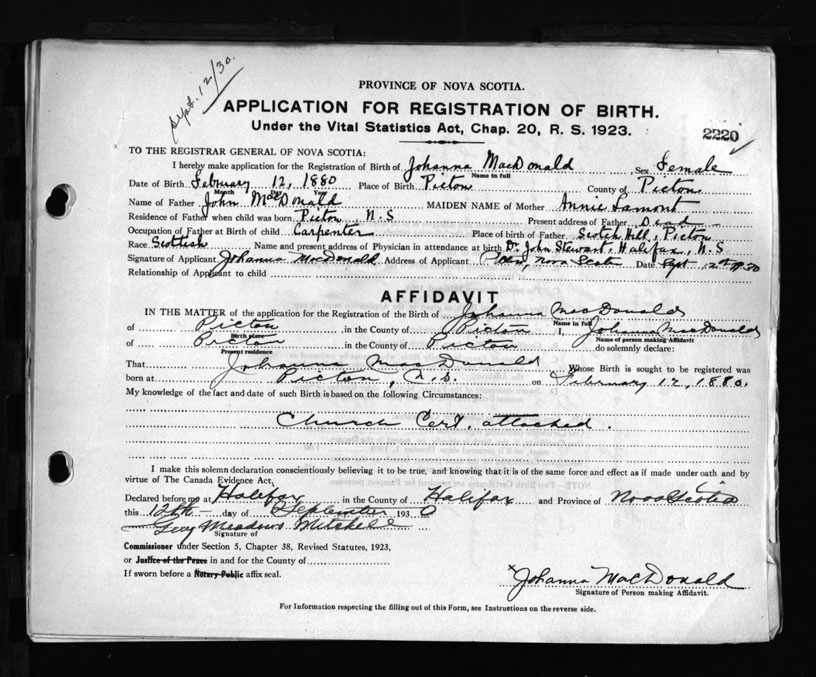 Sept. 12/30.
PROVINCE OF NOVA SCOTIA.
APPLICATION FOR REGISTRATION OF BIRTH.
Under the Vital Statistics Act, Chap. 20, R. S. 1923.
2220
TO THE REGISTRAR GENERAL OF NOVA SCOTIA:
I hereby make application for the Registration of Birth of Johanna MacDonald Sex Female
Name in full
Date of Birth February 12, 1880 Place of Birth Picton County of Picton
Month Day Year
Name of Father John MacDonald MAIDEN NAME of Mother Annie Lamont
Residence of Father when child was born Picton, N.S Present address of Father Dead
Occupation of Father at Birth of child Carpenter Place of Birth of Father Scotch Hill, Picton
Race Scottish Name and present address of Physician in attendance at birth Dr. John Stewart, Halifax, N.S
Signature of Applicant Johanna MacDonald Address of Applicant Nova Scotia Date Sept 12th 1930
Relationship of Applicant to child
AFFIDAVIT
IN THE MATTER of the application for the Registration of the Birth of Johanna MacDonald
Name in full
of Picton in the County of Picton I, Johanna MacDonald
Birth place Name of person making Affidavit
of Picton in the County of Picton do solemnly declare:
Present residence
That Johanna MacDonald Whose Birth is sought to be registered was
born at Picton, N.S. on February 12, 1880.
My knowledge of the fact and date of such Birth is based on the following Circumstances:
Church Cert. attached.
I make this solemn declaration conscientiously believing it to be true, and knowing that it is of the same force and effect as if made under oath and by
virtue of The Canada Evidence Act.
Declared before me at Halifax in the County of Halifax and Province of Nova Scotia
this 12th day of September 1930
Guy Meadows Mitchell
Signature of
Commissioner under Section 5, Chapter 38, Revised Statutes, 1923,
or Justice of the Peace in and for the County of
If sworn before a Notary Public affix seal.
x Johanna MacDonald
Signature of Person making Affidavit.
For Information respecting the filling out of this Form, see Instructions on the reverse side.